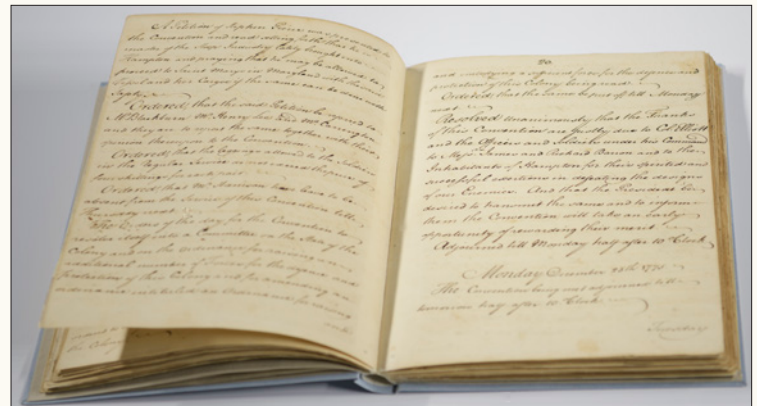 A Petition of Stephen was presented to
the Convention and read setting forth that he is
master of the Ship lately brought into
Hampton and praying that he may be allowed to
proceed to Saint Mary's in Maryland with the said
Vessel and her Cargo if the same can be done with
Safety
Ordered, that the said Petition be referred to
Mr Blackburn Mr Henry Lee and Mr
and they are to report the same together with their
opinion thereupon to the Convention
Ordered, that the allowed to the Soldiers
in the Regular Service
for each
Ordered that Mr Harrison have leave to be
absent from the Service of this Convention till
Thursday next
The Order of the day for the Convention to
resolve itself into a Committee on the State of the
Colony and on the ordinance for raising an
additional number of Forces for the defence and
protection of this Colony and for amending an
ordinance entitled an Ordinance for raising
and
the Colony
20.
and a sufficient force for the defence and
protection of this Colony being read
Ordered, that the same be put off till Monday
next
Resolved Unanimously that the Thanks
of this Convention are justly due to Col. Elliott
and the Officers and Soldiers under his Command
to Messrs James and Richard Barron and to the
Inhabitants of Hampton for their spirited and
successful exertions in defeating the designs
of our Enemies. And that the President be
desired to transmit the same and to inform
them the Convention will take an early
opportunity of rewarding their merit
Adjourned till Monday half after 10 Clock
Monday December 25th 1775
The Convention being met adjourned till
tomorrow half after 10 Clock
Tuesday